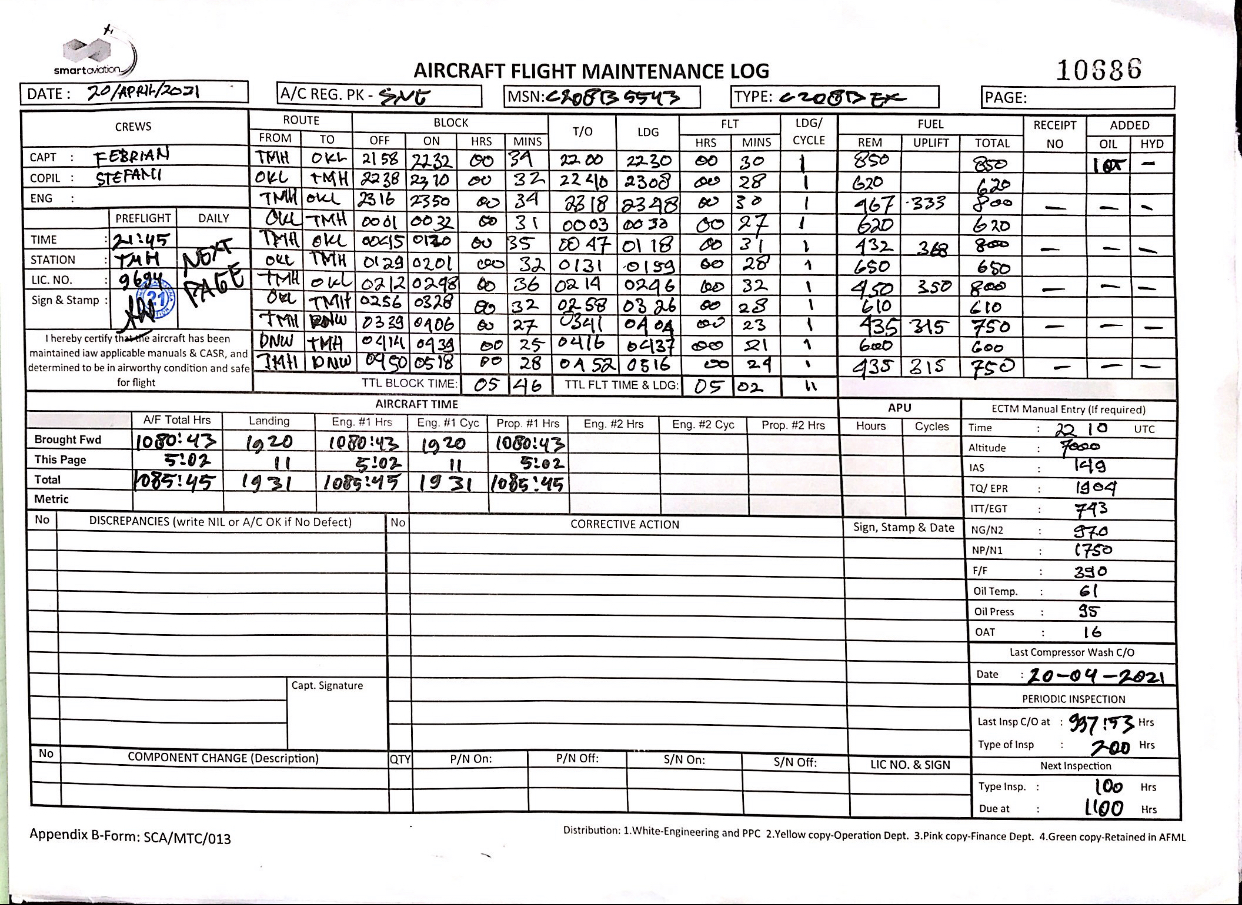 smartaviation
AIRCRAFT FLIGHT MAINTENANCE LOG
10686
DATE : 20/APRIL/2021 A/C REG. PK - SNE MSN: C208B5543 TYPE: C208B EX PAGE:
CREWS ROUTE BLOCK T/O LDG FLT LDG/ CYCLE FUEL RECEIPT NO ADDED
FROM TO OFF ON HRS MINS HRS MINS REM UPLIFT TOTAL OIL HYD
CAPT : FEBRIAN TMH OKL 2158 2232 00 34 2200 2230 00 30 1 850 850 —
COPIL : STEFANI OKL TMH 2238 2310 00 32 2240 2308 00 28 1 620 620
ENG : TMH OKL 2316 2350 00 34 2318 2348 00 30 1 467 333 800 — — —
PREFLIGHT DAILY OKL TMH 0001 0032 00 31 0003 0030 00 27 1 620 620
TIME : 21:45 NEXT PAGE TMH OKL 0045 0120 00 35 0047 0118 00 31 1 432 368 800 — — —
STATION : TMH OKL TMH 0129 0201 00 32 0131 0159 00 28 1 650 650
LIC. NO. : 9694 TMH OKL 0212 0248 00 36 0214 0246 00 32 1 450 350 800 — — —
Sign & Stamp : 21 OKL TMH 0256 0328 00 32 0258 0326 00 28 1 610 610
TMH DNW 0339 0406 00 27 0341 0404 00 23 1 435 315 750 — — —
I hereby certify that the aircraft has been
maintained iaw applicable manuals & CASR, and
determined to be in airworthy condition and safe
for flight
DNW TMH 0414 0439 00 25 0416 0437 00 21 1 600 600
TMH DNW 0450 0518 00 28 0452 0516 00 24 1 435 315 750 — — —
TTL BLOCK TIME: 05 46 TTL FLT TIME & LDG: 05 02 11
AIRCRAFT TIME APU ECTM Manual Entry (If required)
A/F Total Hrs Landing Eng. #1 Hrs Eng. #1 Cyc Prop. #1 Hrs Eng. #2 Hrs Eng. #2 Cyc Prop. #2 Hrs Hours Cycles
Brought Fwd 1080:43 1920 1080:43 1920 1080:43
This Page 5:02 11 5:02 11 5:02
Total 1085:45 1931 1085:45 1931 1085:45
Metric
Time : 22 10 UTC
Altitude : 7000
IAS : 149
TQ/ EPR : 1904
ITT/EGT : 743
NG/N2 : 970
NP/N1 : 1750
F/F : 390
Oil Temp. : 61
Oil Press : 95
OAT : 16
No DISCREPANCIES (write NIL or A/C OK if No Defect) No CORRECTIVE ACTION Sign, Stamp & Date
Capt. Signature
Last Compressor Wash C/O
Date : 20-04-2021
PERIODIC INSPECTION
Last Insp C/O at : 997:53 Hrs
Type of Insp : 200 Hrs
Next Inspection
Type Insp. : 100 Hrs
Due at : 1100 Hrs
No COMPONENT CHANGE (Description) QTY P/N On: P/N Off: S/N On: S/N Off: LIC NO. & SIGN
Appendix B-Form: SCA/MTC/013
Distribution: 1.White-Engineering and PPC 2.Yellow copy-Operation Dept. 3.Pink copy-Finance Dept. 4.Green copy-Retained in AFML